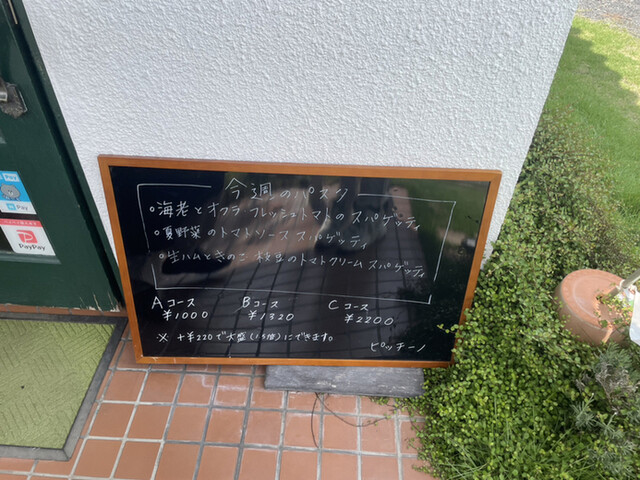 今週のパスタ
○海老とオクラ フレッシュトマトのスパゲッティ
○夏野菜のトマトソース スパゲッティ
○生ハムときのこ 枝豆のトマトクリームスパゲッティ
Aコース Bコース Cコース
¥1000 ¥1320 ¥2200
※ +¥220で大盛(1.5倍)にできます。
ピッチーノ
Pay
Pay
PayPay